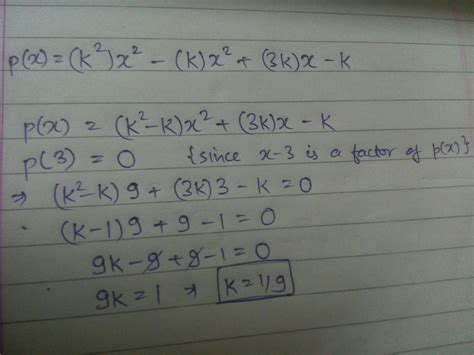 p(x) = (k²)x² - (k)x² + (3k)x - k
p(x) = (k²-k)x² + (3k)x - k
p(3) = 0 {since x-3 is a factor of p(x)}
⇒ (k²-k) 9 + (3k)3 - k = 0
(k-1) 9 + 9 - 1 = 0
9k - 9 + 9 - 1 = 0
9k = 1 ⇒ k = 1/9